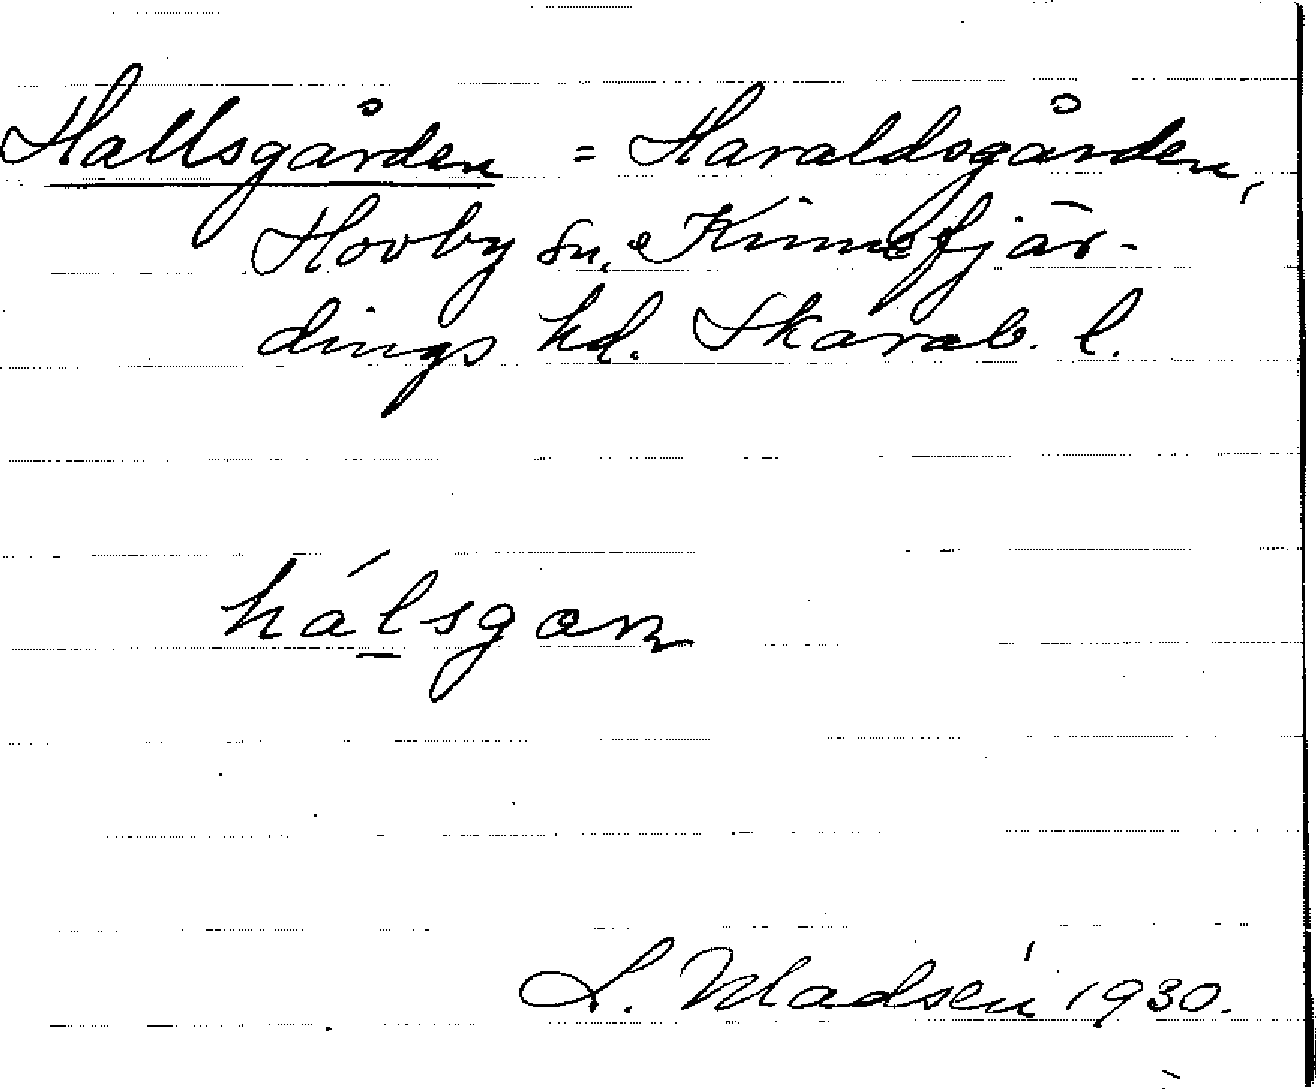 Hallsgården = Haraldsgården,
Hovby sn, Kinnefjär-
dings hd. Skarab. l.
hálsgaɳ
L. Madsén 1930.